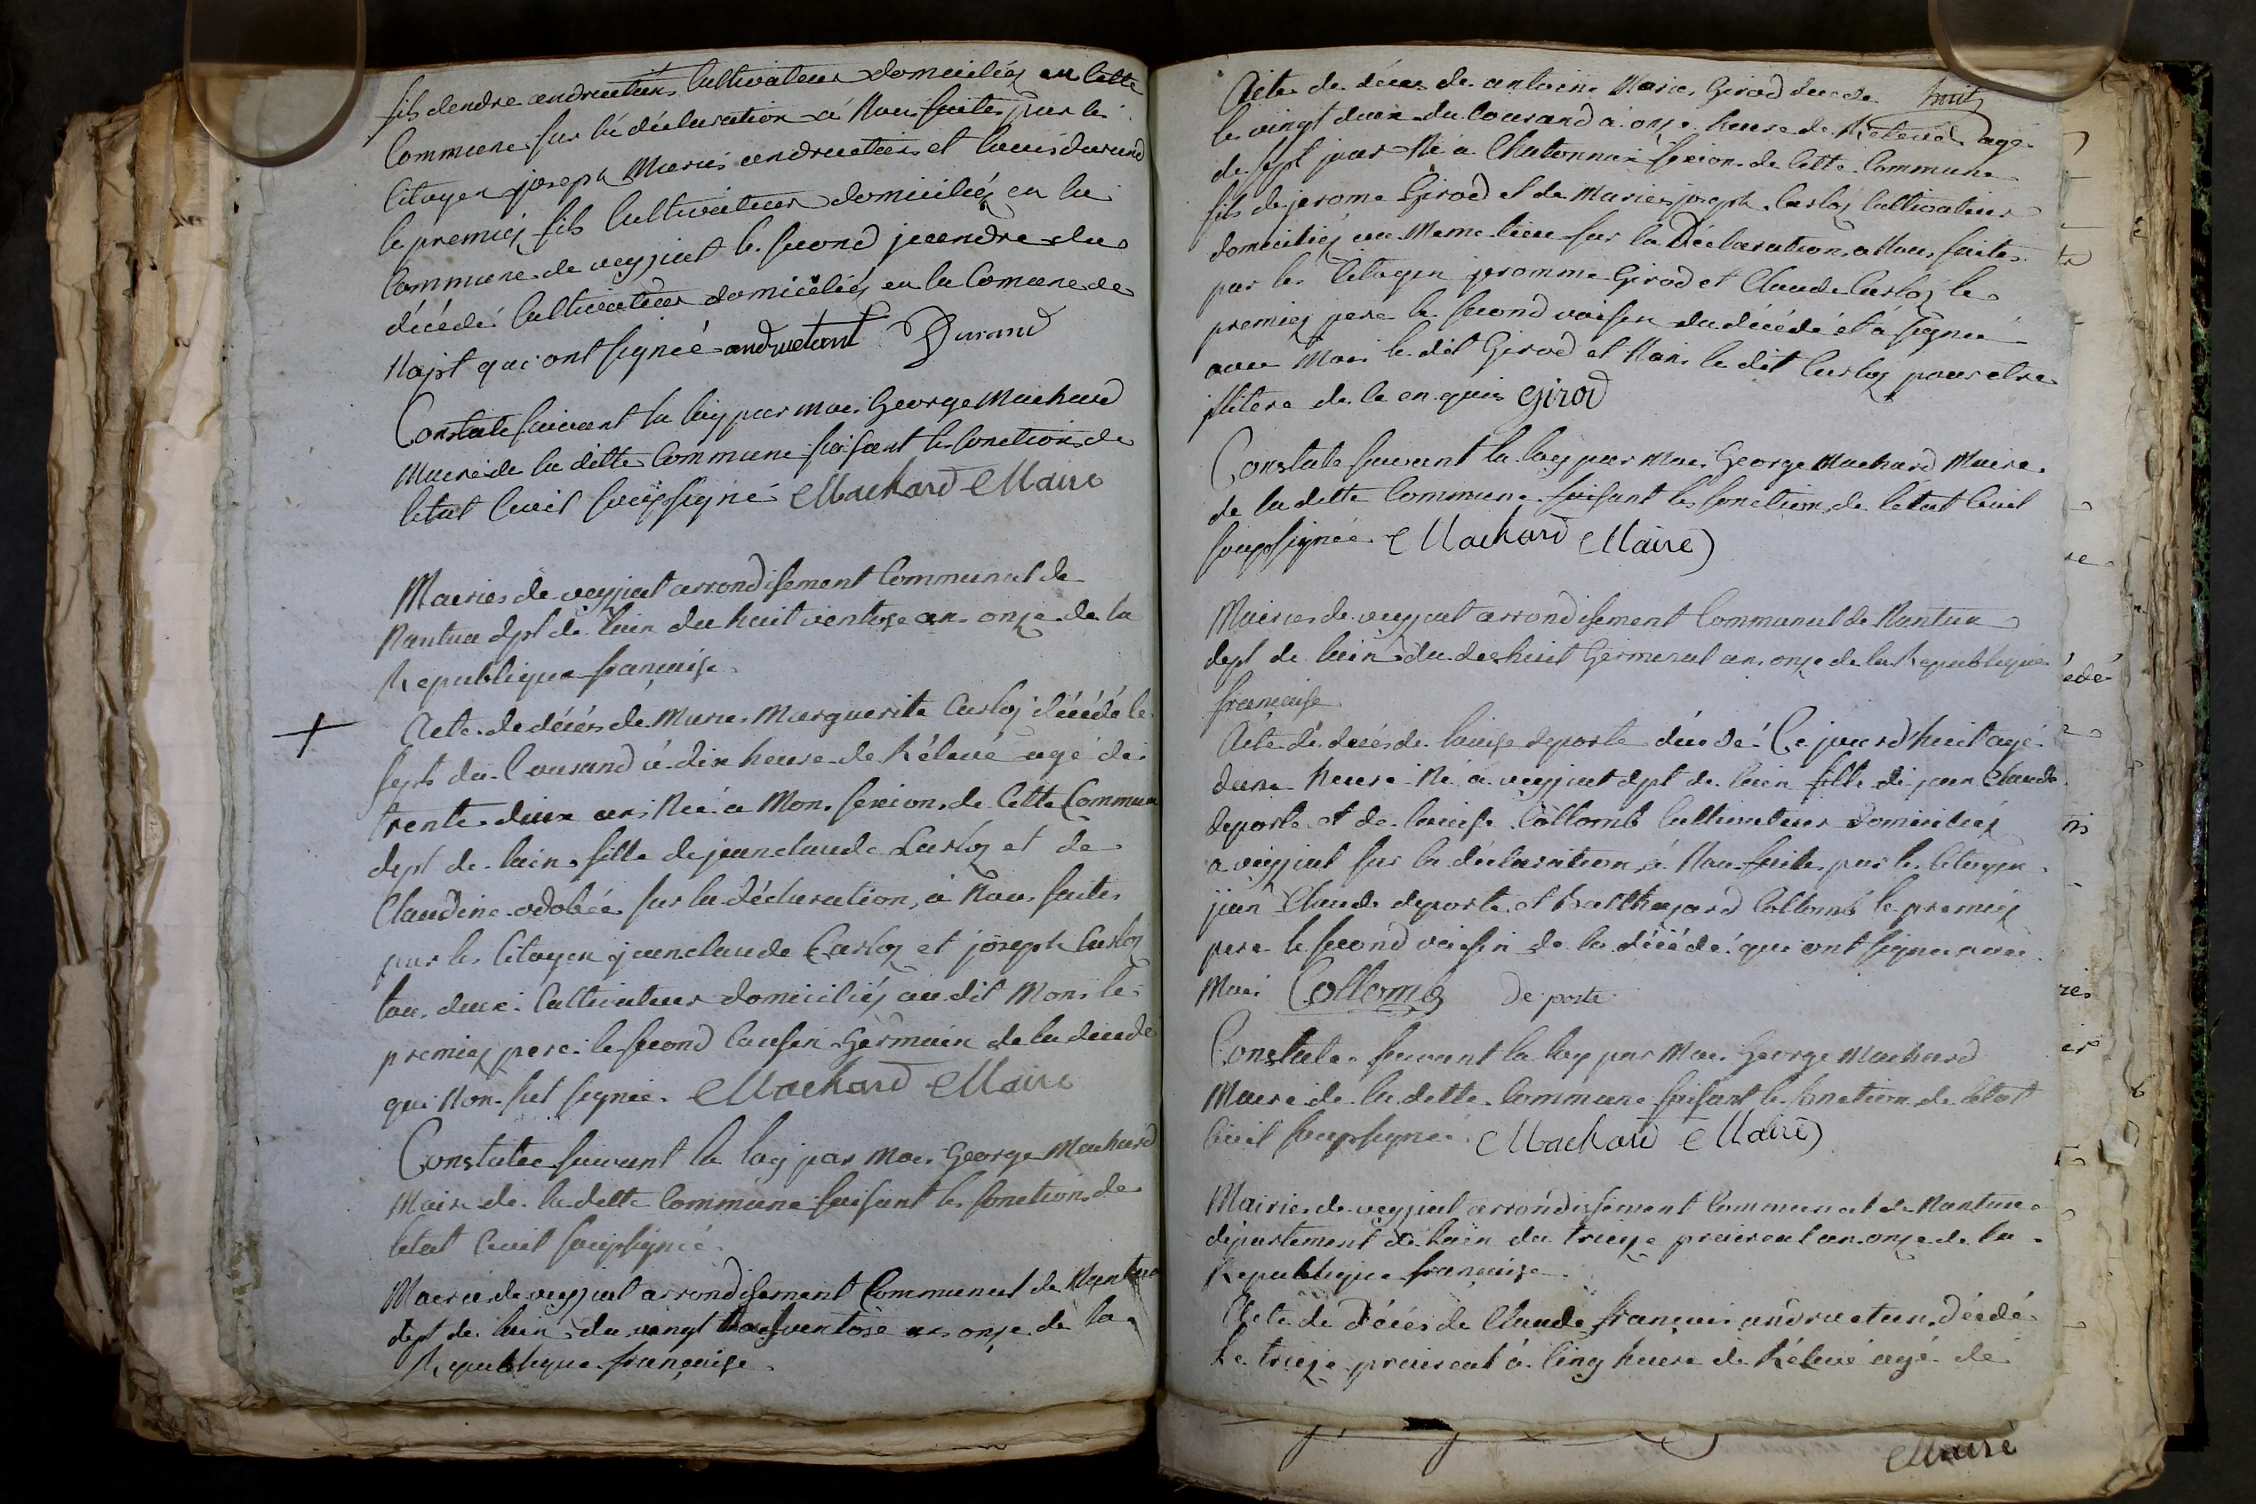 fils dendre andruetans Cultivateur domiciliéz en Cette
Commune sur la déclaration à Nous faites par les
Citoyen joseph Marie andruetans et louis durand
le premiéz fils Cultivateur domiciliéz en la
Commune de veyziat le second jeendre du
décédé Cultivateur domiciliéz en la Comune de
qui ont signée andruetant Durand
Constate suivant la loy par moi George Machard
Maire de la ditte Commune faisant les fonctions de
letat Civil soupsigné Machard Maire
Mairie de veyziat arrondisement Communal de
Nantua dpt de lain du huit ventose an onze de la
Republique française
Acte de décés de Marie Marguerite Carloz décédé le
sept du Courand à dix heure de Rélevé agé de
trente deux ans Né à Mons sexion de Cette Commune
dept de lain fille de jeanclaude Carloz et de
Claudine odobée sur la déclaration à Nous faites
par les Citoyen jeanclaude Carloz et joseph Carloz
tou deux Cultivateur domiciliéz audit Mons le
premiez pere le second Causin Germain de la décédé
qui Non sut signée Machard Maire
Constatee suivant la loy par moi George Machard
Maire de la ditte Commune faisant les fonctions de
letat Civil soupsigné
Mairie de veyziat arrondisement Communal de Nantua
dept de lain du vingt ventose an onze de la
Republique française
huit
Acte de déces de antoine Marie Girod decede
le vingt deux du Courand à onze heure de Relevé agé
de sept jour Né à Chatonnax sexion de Cette Commune
fils de jerome Girod et de Marie joseph Carloz Cultivateur
domiciliéz au Meme lieu sur la Déclaration a Nous faites
par les Citoyen jeromme Girod et Claude Carloz le
premiez pere le second voisin du décédé et à signé
avec Moi le dit Girod et Non le dit Carloz pour etre
illitere de le enquis Girod
Constate suivant la loy par moi George Machard Maire
de la ditte Commune faisant les fonctions de létat Civil
soupsignée Machard Maire
Mairie de veyziat arrondisement Communal de Nantua
dept de lain du dezhuit Germinal an onze de la Republique
française
Acte de décés de louise deporte décédé Ce jourdhuit agé
dune heure Né à veyziat dpt de lain fille de jean Claude
deporte et de louise Collomb Cultivateur domiciliéz
a veyziat sur la déclaration à Nous faite par les Citoyen
jean Claude deporte et Balthazard Collomb le premiéz
pere le second voisin de la décédé qui ont signé avec
Moi Collomb De porte
Constate suivant la loy par Moi George Machard
Maire de la ditte Commune faisant les fonction de létat
Civil soupsigné Machard Maire
Mairie de veyziat arrondissement Communal de Nantua
département de lain du treize preireal an onze de la
Republique française
Acte de Décés de Claude françois andruetan Décédé
Le treize preireal à Cinq heure de Rélevé agé de
Maire